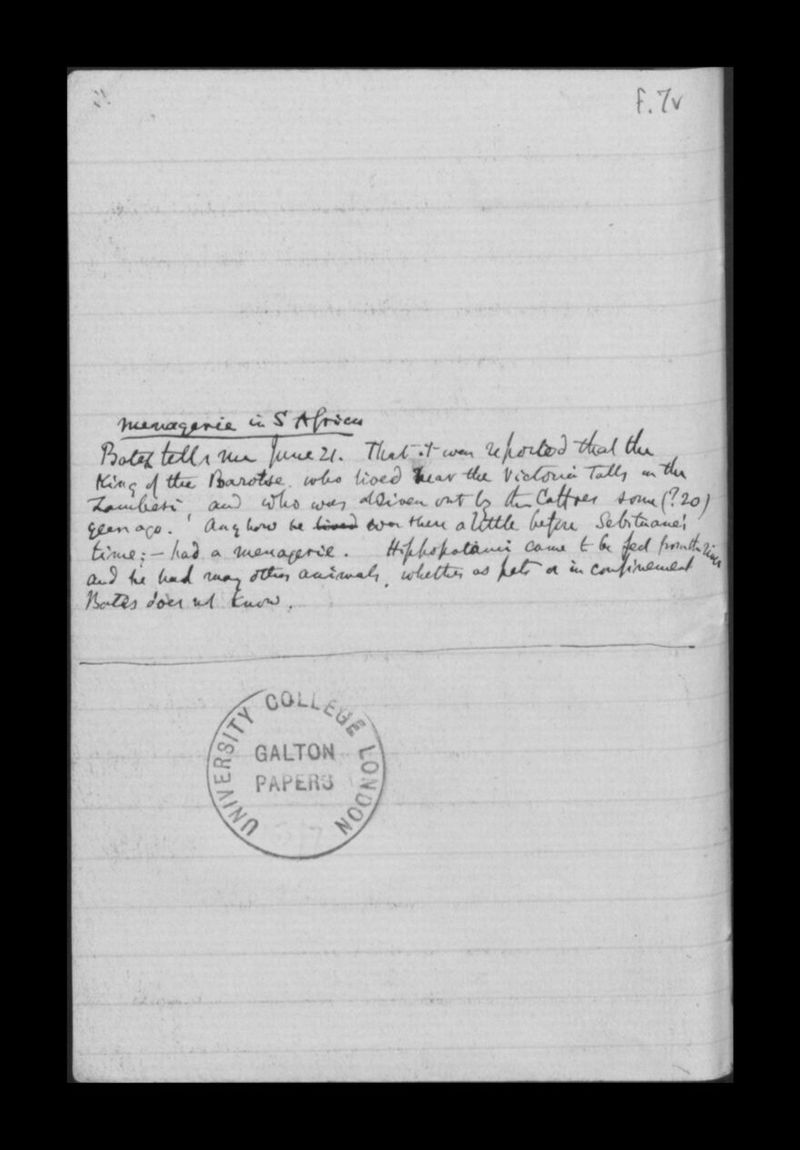 F.7v
Menagerie in S Africa
Bates tells me June 21. That it was reported that the
King of the Barotse. who lived near the Victoria Falls on the
Zambesi, and who was driven out by the Caffres some (?20)
years ago. Anyhow he lived was there a little before Sebituane's
time; — had a menagerie. Hippopotami came to be fed from the river
and he had many other animals, whether as pets or in confinement
Bates does not know.
UNIVERSITY COLLEGE LONDON
GALTON
PAPERS